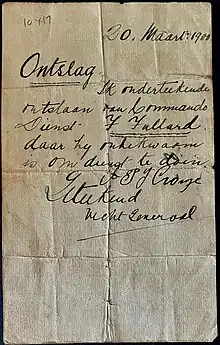 10417
20. Maart. 1900
Ontslag. Ik onderteekende
ontslaan van Commando
Dienst F Fullard.
daar hy onbekwaam
is om dienst te doen
G A P J Cronje
Geteekend
Vecht Generaal